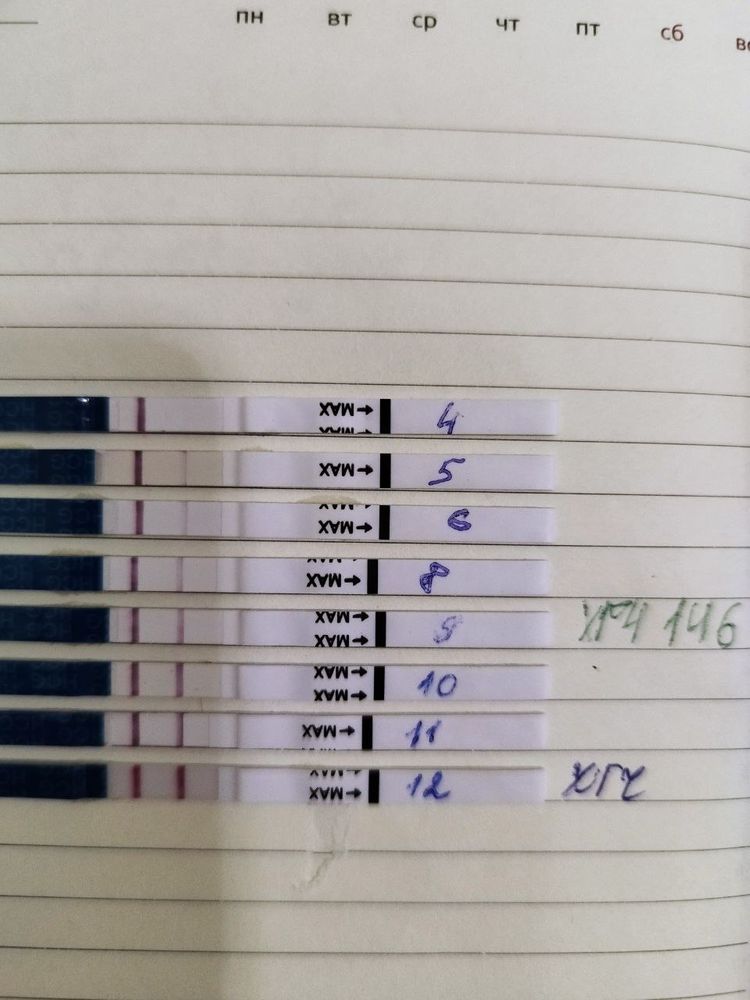 пн вт ср чт пт сб
MAX 4
MAX 5
MAX 6
MAX 8
MAX 9 ХГЧ 146
MAX 10
MAX 11
MAX 12 ХГЧ